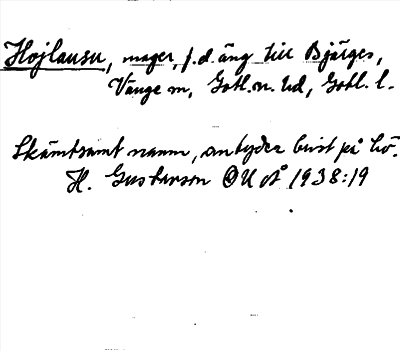 Hojlausu, mager, f.d. äng till Bjärges,
Vänge sn, Gotl.n. hd, Gotl. l.
Skämtsamt namn, antyder brist på hö.
H. Gustavson OUÅ 1938:19